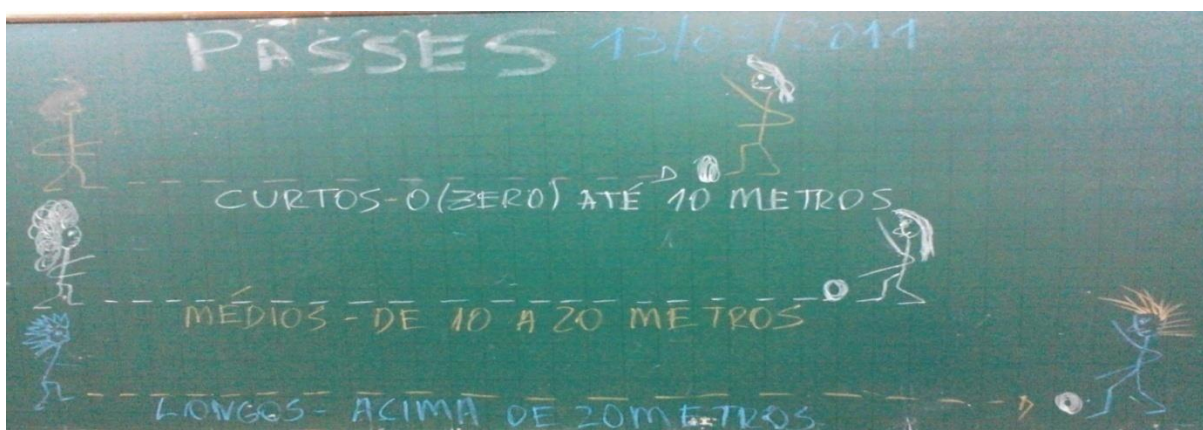 PASSES 13/03/2011
CURTOS-0(ZERO) ATÉ 10 METROS
MÉDIOS - DE 10 A 20 METROS
LONGOS - ACIMA DE 20 METROS